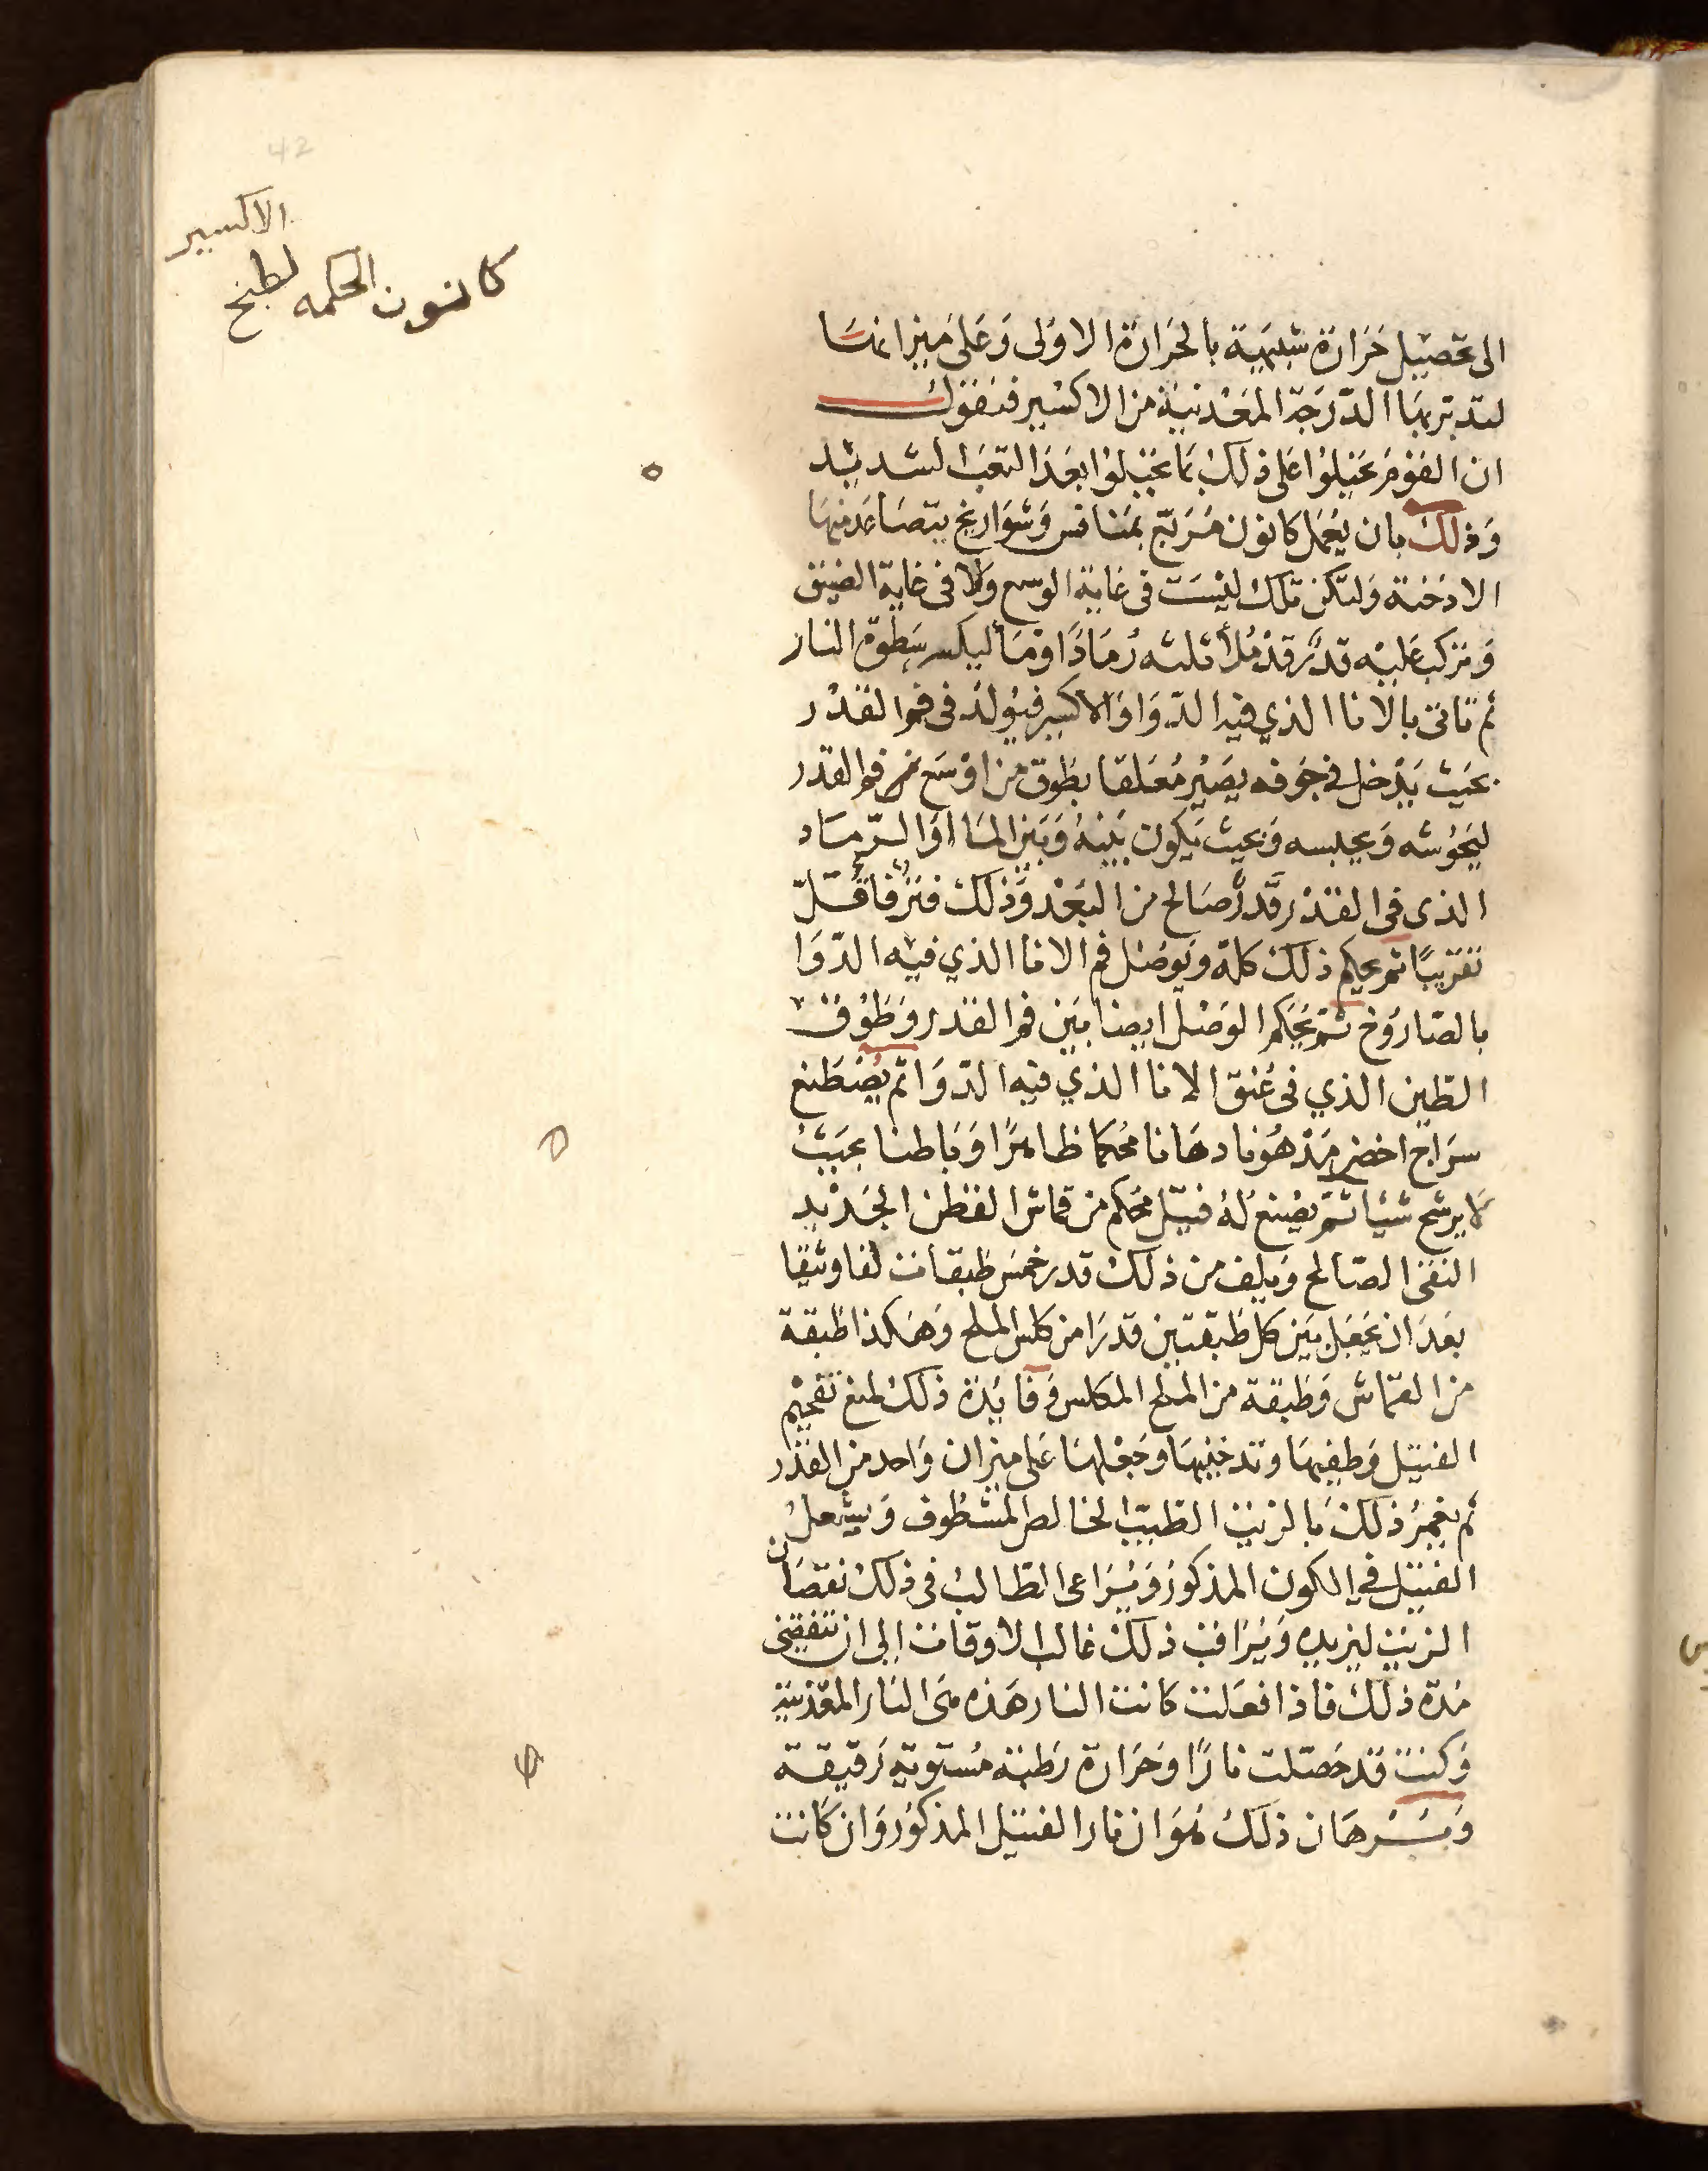 42
الاكسير
كانون الحكمه لطبخ
الى تحصيل حرارة شبيهة بالحرارة الاولى وعلى ميزانها
لتدبر بها الدرجة المعدنية من الاكسير فنقول
ان القوم تحيلوا على ذلك بما تحيلوا بعد التعب الشديد
وذلك بان يعمل كانون مربع بمنافس وشواريخ يتصاعد منها
الادخنة ولتكن تلك ليست في غاية الوسع ولا في غاية الضيق
وتركب عليه قدر قد ملأ ثلثه رمادا او ماء ليكسر سطوة النار
ثم تاتي بالانا الذي فيه الدوا والاكسير فيولد في فم القدر
بحيث يدخل في جوفه يصير معلقا بطوق من اوسع من فم القدر
ليحوشه ويحبسه وبحيث يكون بينه وبين الما او الرماد
الذي في القدر قدر صالح من البعد وذلك فتر فاقل
تقريبا ثم يحكم ذلك كله ويوصل فم الانا الذي فيه الدوا
بالصاروخ ثم يحكم الوصل ايضا بين فم القدر وطوق
الطين الذي في عنق الانا الذي فيه الدوا ثم يصطنع
سراج اخضر مدهونا دهانا محكما ظاهرا وباطنا بحيث
لا يرشح شيا ثم يصنع له فتيل محكم من قماش القطن الجديد
النقي الصالح ويلف من ذلك قدر خمس طبقات لفا وثيقا
بعد ان يجعل بين كل طبقتين قدرا من كلس الملح وهكذا طبقة
من القماش وطبقة من الملح المكلس وفايدة ذلك لمنع تفحيم
الفتيل وطفيها وتدخينها وجعلها على ميزان واحد من القدر
ثم يغمر ذلك بالزيت الطيب الخالص المشطوف ويشعل
الفتيل في الكون المذكور ويراعى الطالب في ذلك نقصان
الزيت ليزيده ويراقب ذلك غالب الاوقات الى ان تنقضي
مدة ذلك فاذا فعلت كانت النار هذه هي النار المعدنية
وكنت قد حصلت نارا وحرارة رطبة مستوية رقيقة
وبرهان ذلك هو ان نار الفتيل المذكور وان كانت